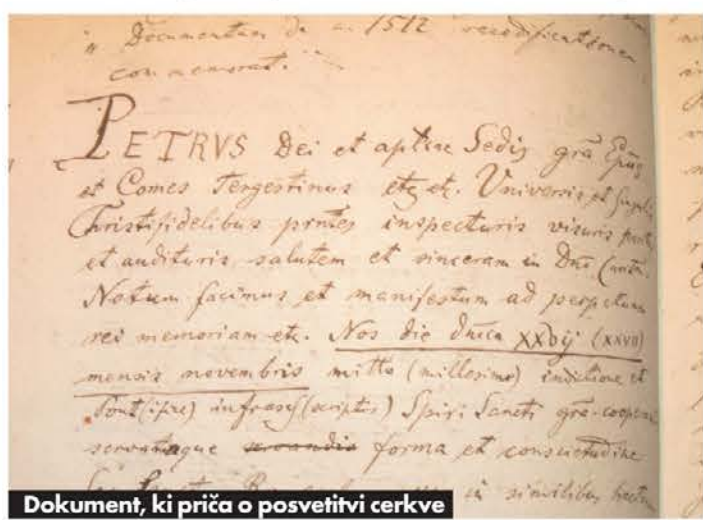 " Documentum de a. 1512 reaedificationem
commemorat. "
PETRVS Dei et aptice Sedis grã Epus
et Comes Tergestinus etc etc. Universis et singulis
Christifidelibus prntes inspecturis visuris
et audituris salutem et sinceram in Dno
Notum facimus et manifestum ad perpetuam
rei memoriam etc. Nos die dnica XXVij (XXVII)
mensis novembris mill̃o (millesimo) indictione et
Pont(ifice) infrasc(scriptus) Spiri Sancti grã-cooper
servataque servandis forma et consuetudine
in similibus
Dokument, ki priča o posvetitvi cerkve